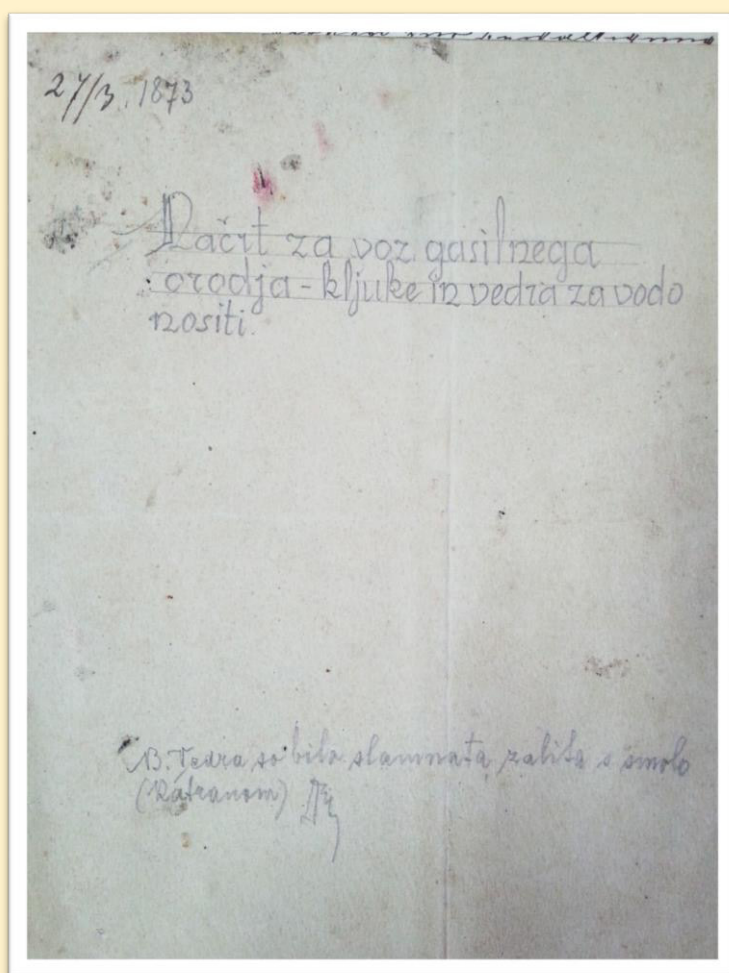 27/3. 1873
Načrt za voz gasilnega
orodja - kljuke in vedra za vodo
nositi.
NB. Vedra so bila slamnata, zalita s smolo
(Katranom)